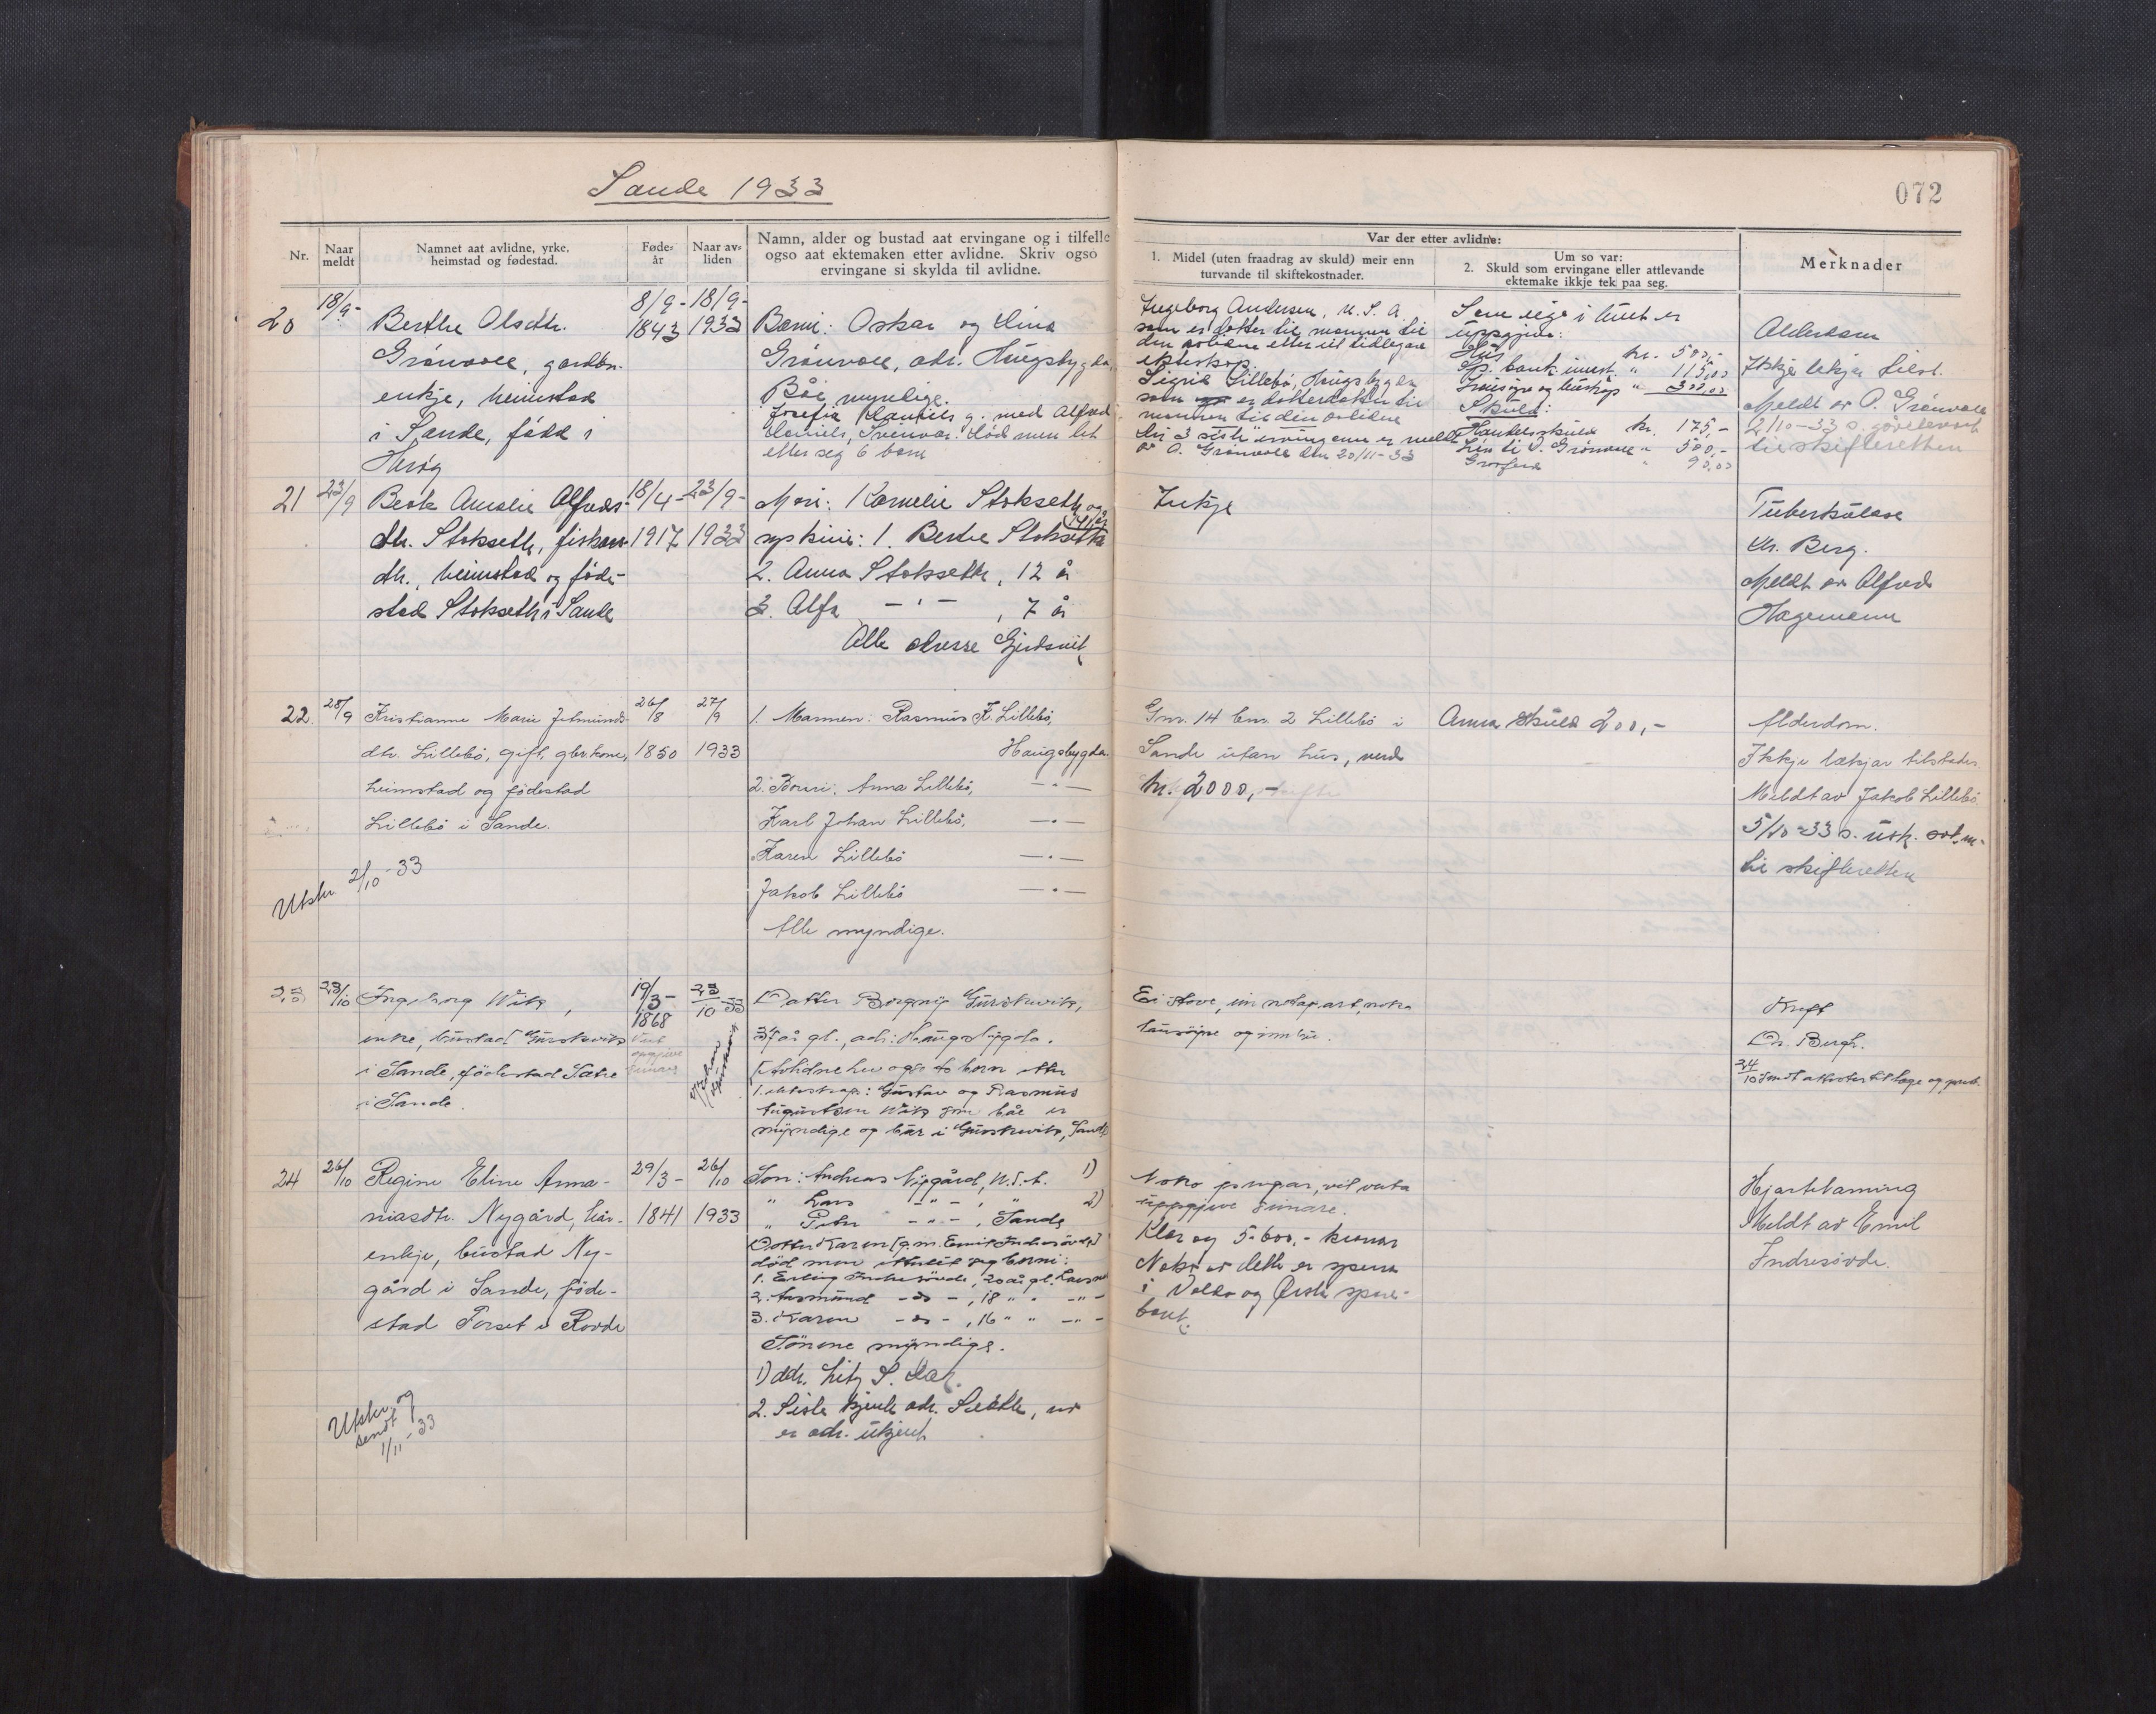 Sande 1933
072
Nr.
Naar meldt
Namnet aat avlidne, yrke.
heimstad og fødestad.
Føde-
år
Naar av-
liden
Namn, alder og bustad aat ervingane og i tilfelle
ogso aat ektemaken etter avlidne. Skriv ogso
ervingane si skylda til avlidne.
Var der etter avlidne:
1. Midel (uten fraadrag av skuld) meir enn
turvande til skiftekostnader.
Um so var:
2. Skuld som ervingane eller attlevande
ektemake ikkje tek paa seg.
Merknader
20
18/9
Berthe Olsdtr.
Grønvoll, gardbr.
enkje, heimstad
i Sande, fødd i
Herøy
8/9-
1843
18/9-
1933
Borni: Oskar og Lina
Grønvoll, adr. Haugsbygda.
Båe myndige.
Josefia Daniels g. med Alfred
Daniels, død men let
etter seg 6 born
Ingeborg Andersen, U.S.A.
som er dotter til mannen til
den avlidne etter eit tidlegare
ekteskap.
Sigrid Lillebö, Haugsbygda
som er dotterdotter til
mannen til den avlidne
Dei 3 siste ervingane er meldt
av O. Grønvoll den 20/11-33
Som eige i buet er
uppgjeve:
Hus kr. 500,-
Sp. bank innest. " 115,00
Lausøyre og buskap " 300,00
Skuld:
Handelsskuld kr. 175,-
Lån ti O. Grønvoll " 500,-
Gravferd " 90,00
Alderdom
Ikkje lækjar tilst.
Meldt av O. Grønvoll
2/10-33 s.
til skifteretten
21
23/9
Berte Amalie Alfreds-
dtr. Stokseth, fiskar-
dtr., heimstad og føde-
stad Stokseth i Sande
18/4-
1917
23/9-
1933
Mori: Kornelie Stokseth og
syskini: 1. Berte Stokseth 14 år
2. Anna Stokseth, 12 år
3. Alfa -"- , 7 år
Alle adresse Gjerdsvik
Inkje
Tuberkulose
Dr. Berg.
Meldt av Alfred
Hagemann
22.
28/9
Kristianne Marie Jetmunds-
dtr. Lillebö, gift, gbr.kone,
heimstad og födestad
Lillebö i Sande.
26/8
1850
27/9
1933
1. Mannen: Rasmus K. Lillebö,
Haugsbygda
2. Borni: Anna Lillebö, -"-
Karl Johan Lillebö, -"-
Karen Lillebö -"-
Jakob Lillebö -"-
Alle myndige.
Gnr. 14 bnr. 2 Lillebö i
Sande utan hus, verd
kr. 2000,-
Anna skuld 200,-
Alderdom.
Ikkje lækjar tilstades
Meldt av Jakob Lillebö
5/10-33 s. utsk.
til skifteretten
Utskr. 2/10-33
23
23/10
Ingeborg Wik,
enke, bustad Gurskevik
i Sande, fødestad Sætre
i Sande.
19/3-
1868
Vert
oppgjeve
seinare
23/10 33
Dotter Borgny Gurskevik,
37 år gl., adr: Haugsbygda.
Avlidne hev også to born etter
1. ekteskap: Gustav og Rasmus
Augustsen Wik som båe er
myndige og bur i Gurskevik, Sande
Ei stove, ein notapart, noko
lausöyre og innbu.
Kreft
Dr. Bergh.
24/10 Sendt attester til lege og prest.
24
26/10
Regine Eline Anna-
niasdtr. Nygård, kår-
enkje, bustad Ny-
gård i Sande, føde-
stad Forset i Rovde
29/3-
1841
26/10
1933
Son: Andreas Nygård, U.S.A. 1)
" Lars -"- , " 2)
" Peter -"- , Sande
Dotter Karen (g.m. Emil Indresövde)
död men etterlet seg borni:
1. Erling Indresövde, 20 år gl.
2. Aasmund -do- , 18 " " -"-
3. Karen -do- , 16 " " -"-
Sönene myndige.
1) adr.
2. Siste kjente adr. Seattle, no
er adr. ukjent
Noko pengar, vil verta
uppgjeve seinare.
Klær og 5-600,- kronor
Noko av dette er
i Volda og Ørsta spare-
bank.
Hjartelaming
Meldt av Emil
Indresövde.
Utskr. og
sendt
1/11-33